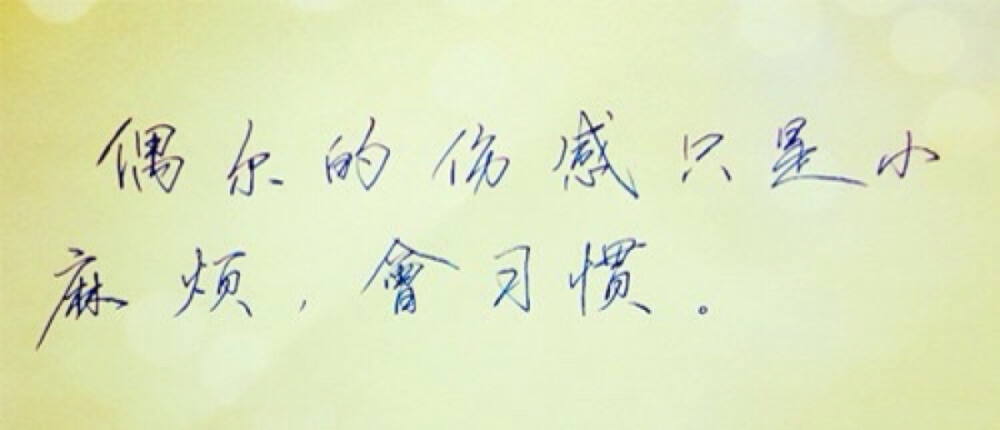 偶尔的伤感只是小
麻烦，會习惯。